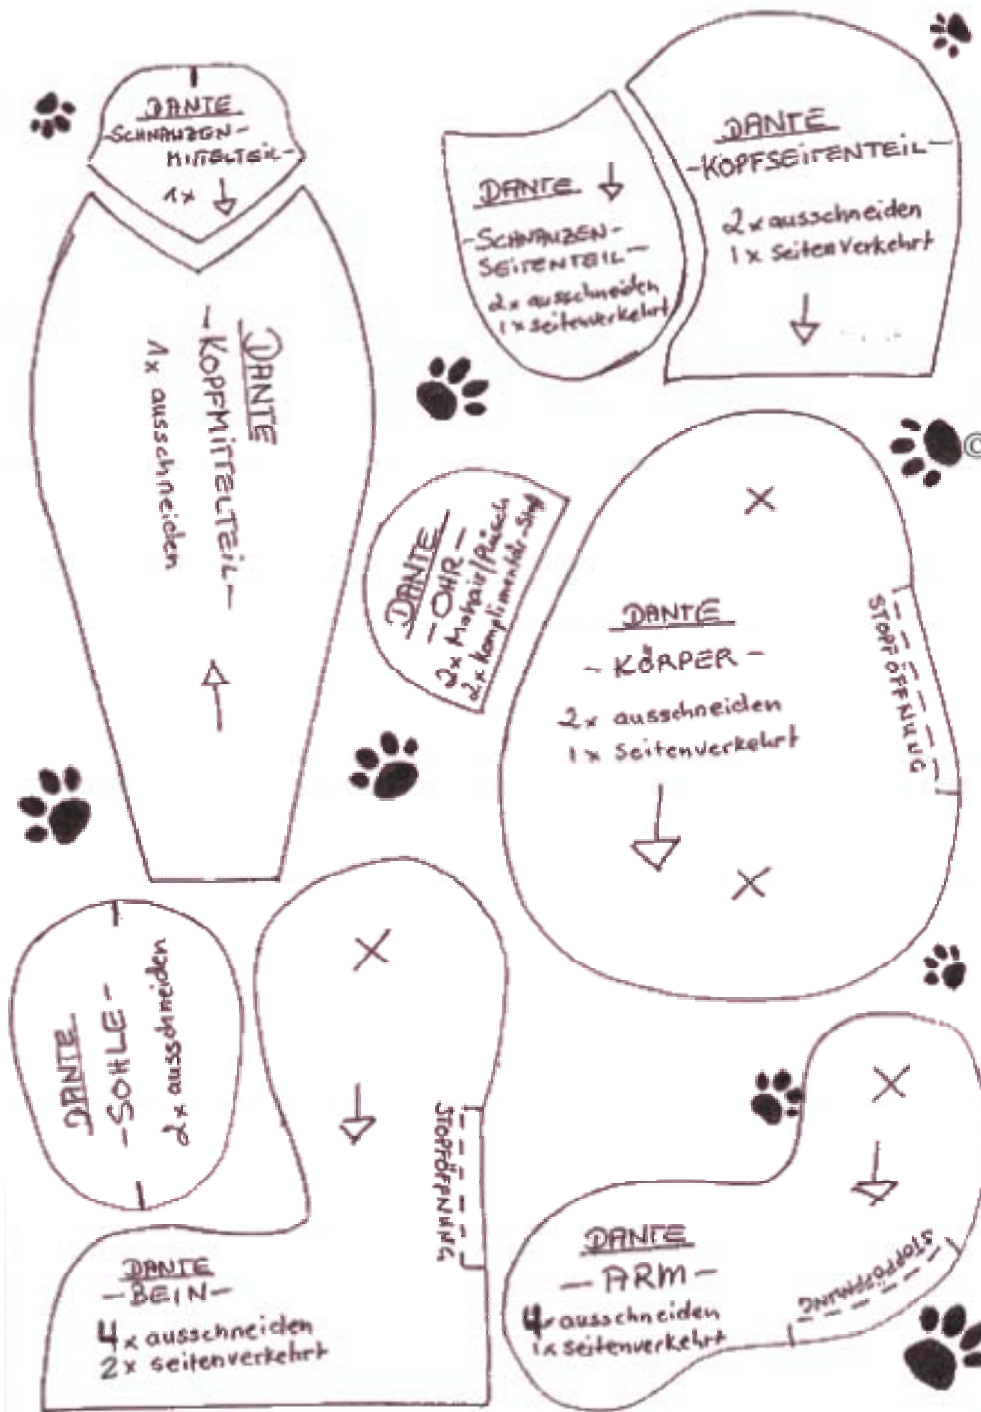 DANTE
-SCHNAUZEN-
MITTELTEIL-
1x
DANTE
-KOPFSEITENTEIL-
2x ausschneiden
1x seitenverkehrt
DANTE
-SCHNAUZEN-
SEITENTEIL-
2x ausschneiden
1x seitenverkehrt
DANTE
-KOPFMITTELTEIL-
1x ausschneiden
©
DANTE
-OHR-
2x Mohair/Plüsch
2x Komplimentär-Stoff
DANTE
-KÖRPER-
2x ausschneiden
1x seitenverkehrt
STOPFÖFFNUNG
DANTE
-SOHLE-
2x ausschneiden
STOPFÖFFNUNG
DANTE
-BEIN-
4x ausschneiden
2x seitenverkehrt
DANTE
-ARM-
4x ausschneiden
1x seitenverkehrt
STOPFÖFFNUNG